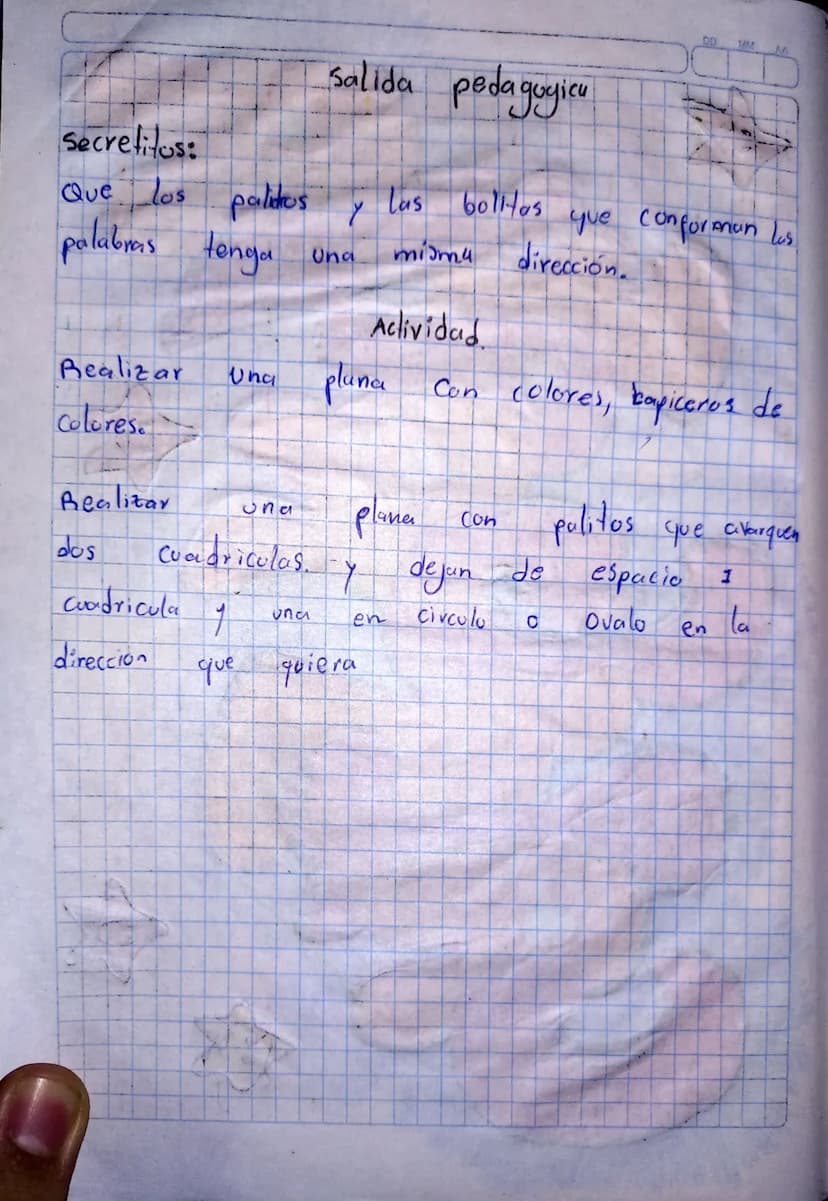 Salida pedagogica
Secretitos:
Que los palitos y las bolitas que conforman las
palabras tenga una misma dirección.
Actividad.
Realizar una plana con colores, lapiceros de
colores.
Realizar una plana con palitos que avarquen
dos cuadriculas. y dejan de espacio 1
cuadricula y una en circulo o ovalo en la
direccion que quiera